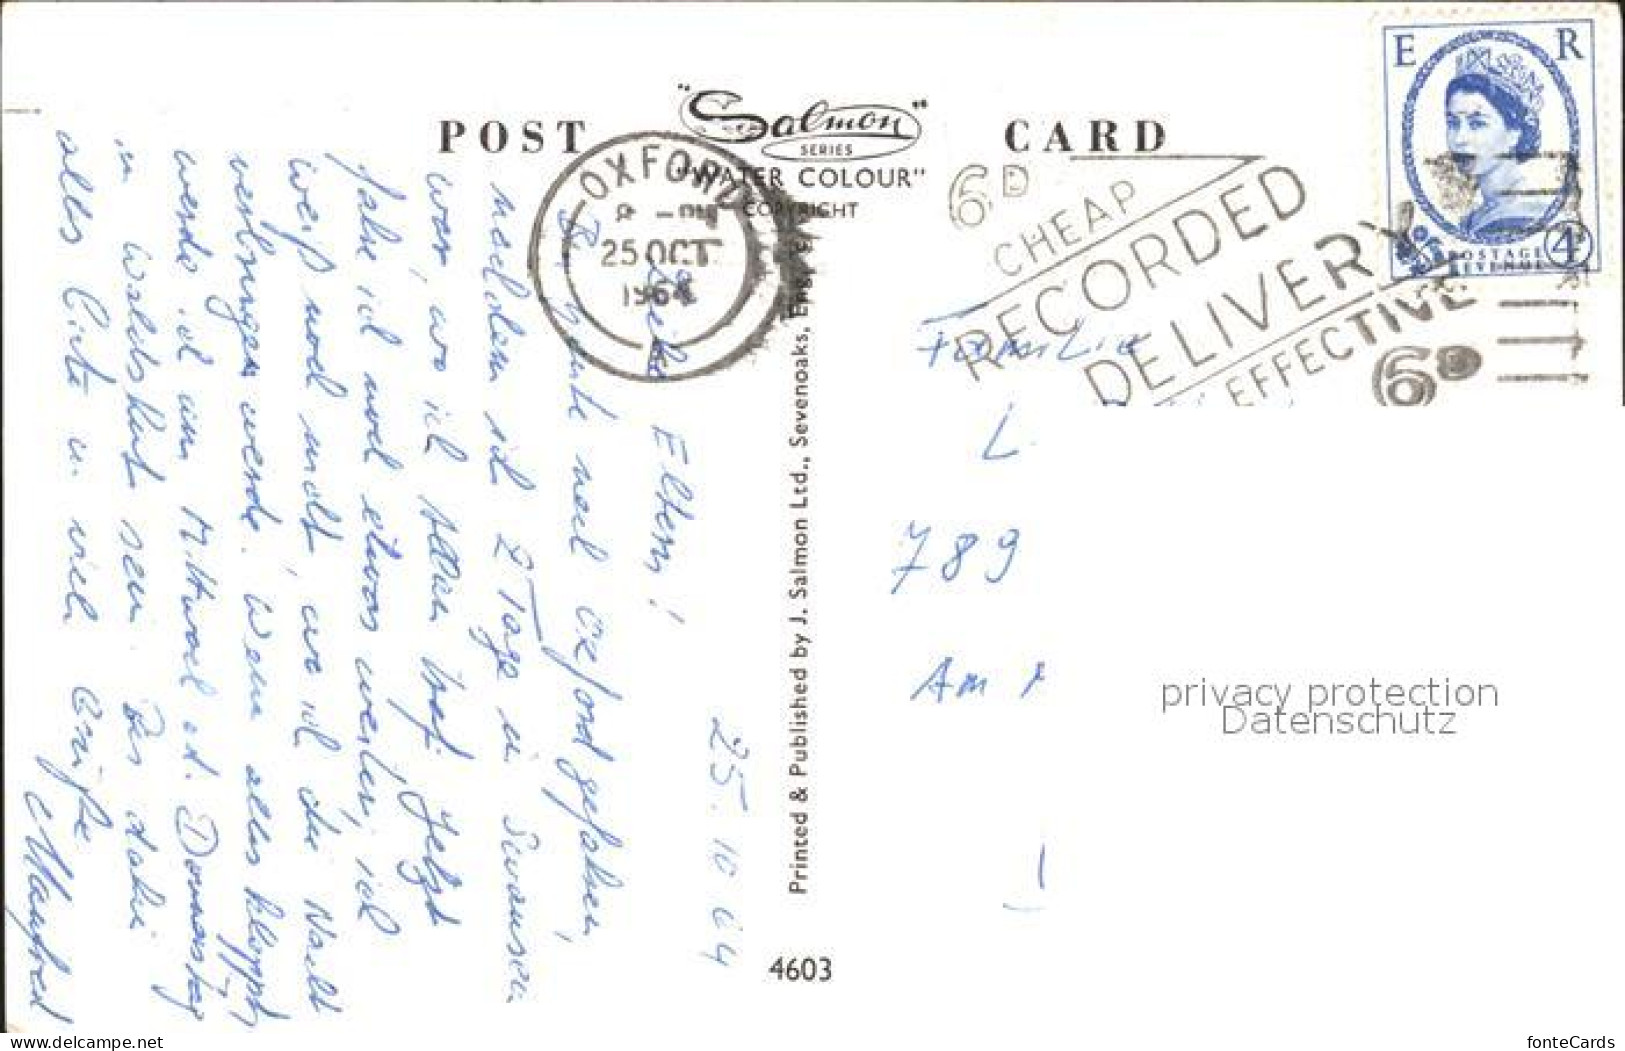 POST CARD
"Salmon"
SERIES
"WATER COLOUR"
COPYRIGHT
OXFORD
8 - PM
25 OCT
1964
6D
CHEAP
RECORDED
DELIVERY
EFFECTIVE
6D
E R
POSTAGE
REVENUE
4D
25. 10 64
Liebe Eltern!
Bin heute nach Oxford gefahren,
nachdem ich 2 Tage in Swansea
war, wo ich Allan traf. Jetzt
fahre ich noch etwas weiter, ich
weiß noch nicht, wo ich die Nacht
verbringen werde. Wenn alles klappt,
werde ich am Mittwoch od. Donnerstag
in Waldshut sein. Bis dahin
alles Gute u. viele Grüße
Manfred
Printed & Published by J. Salmon Ltd., Sevenoaks, Eng
4603
Familie
L
789
Am
privacy protection
Datenschutz
www.delcampe.net
fonteCards